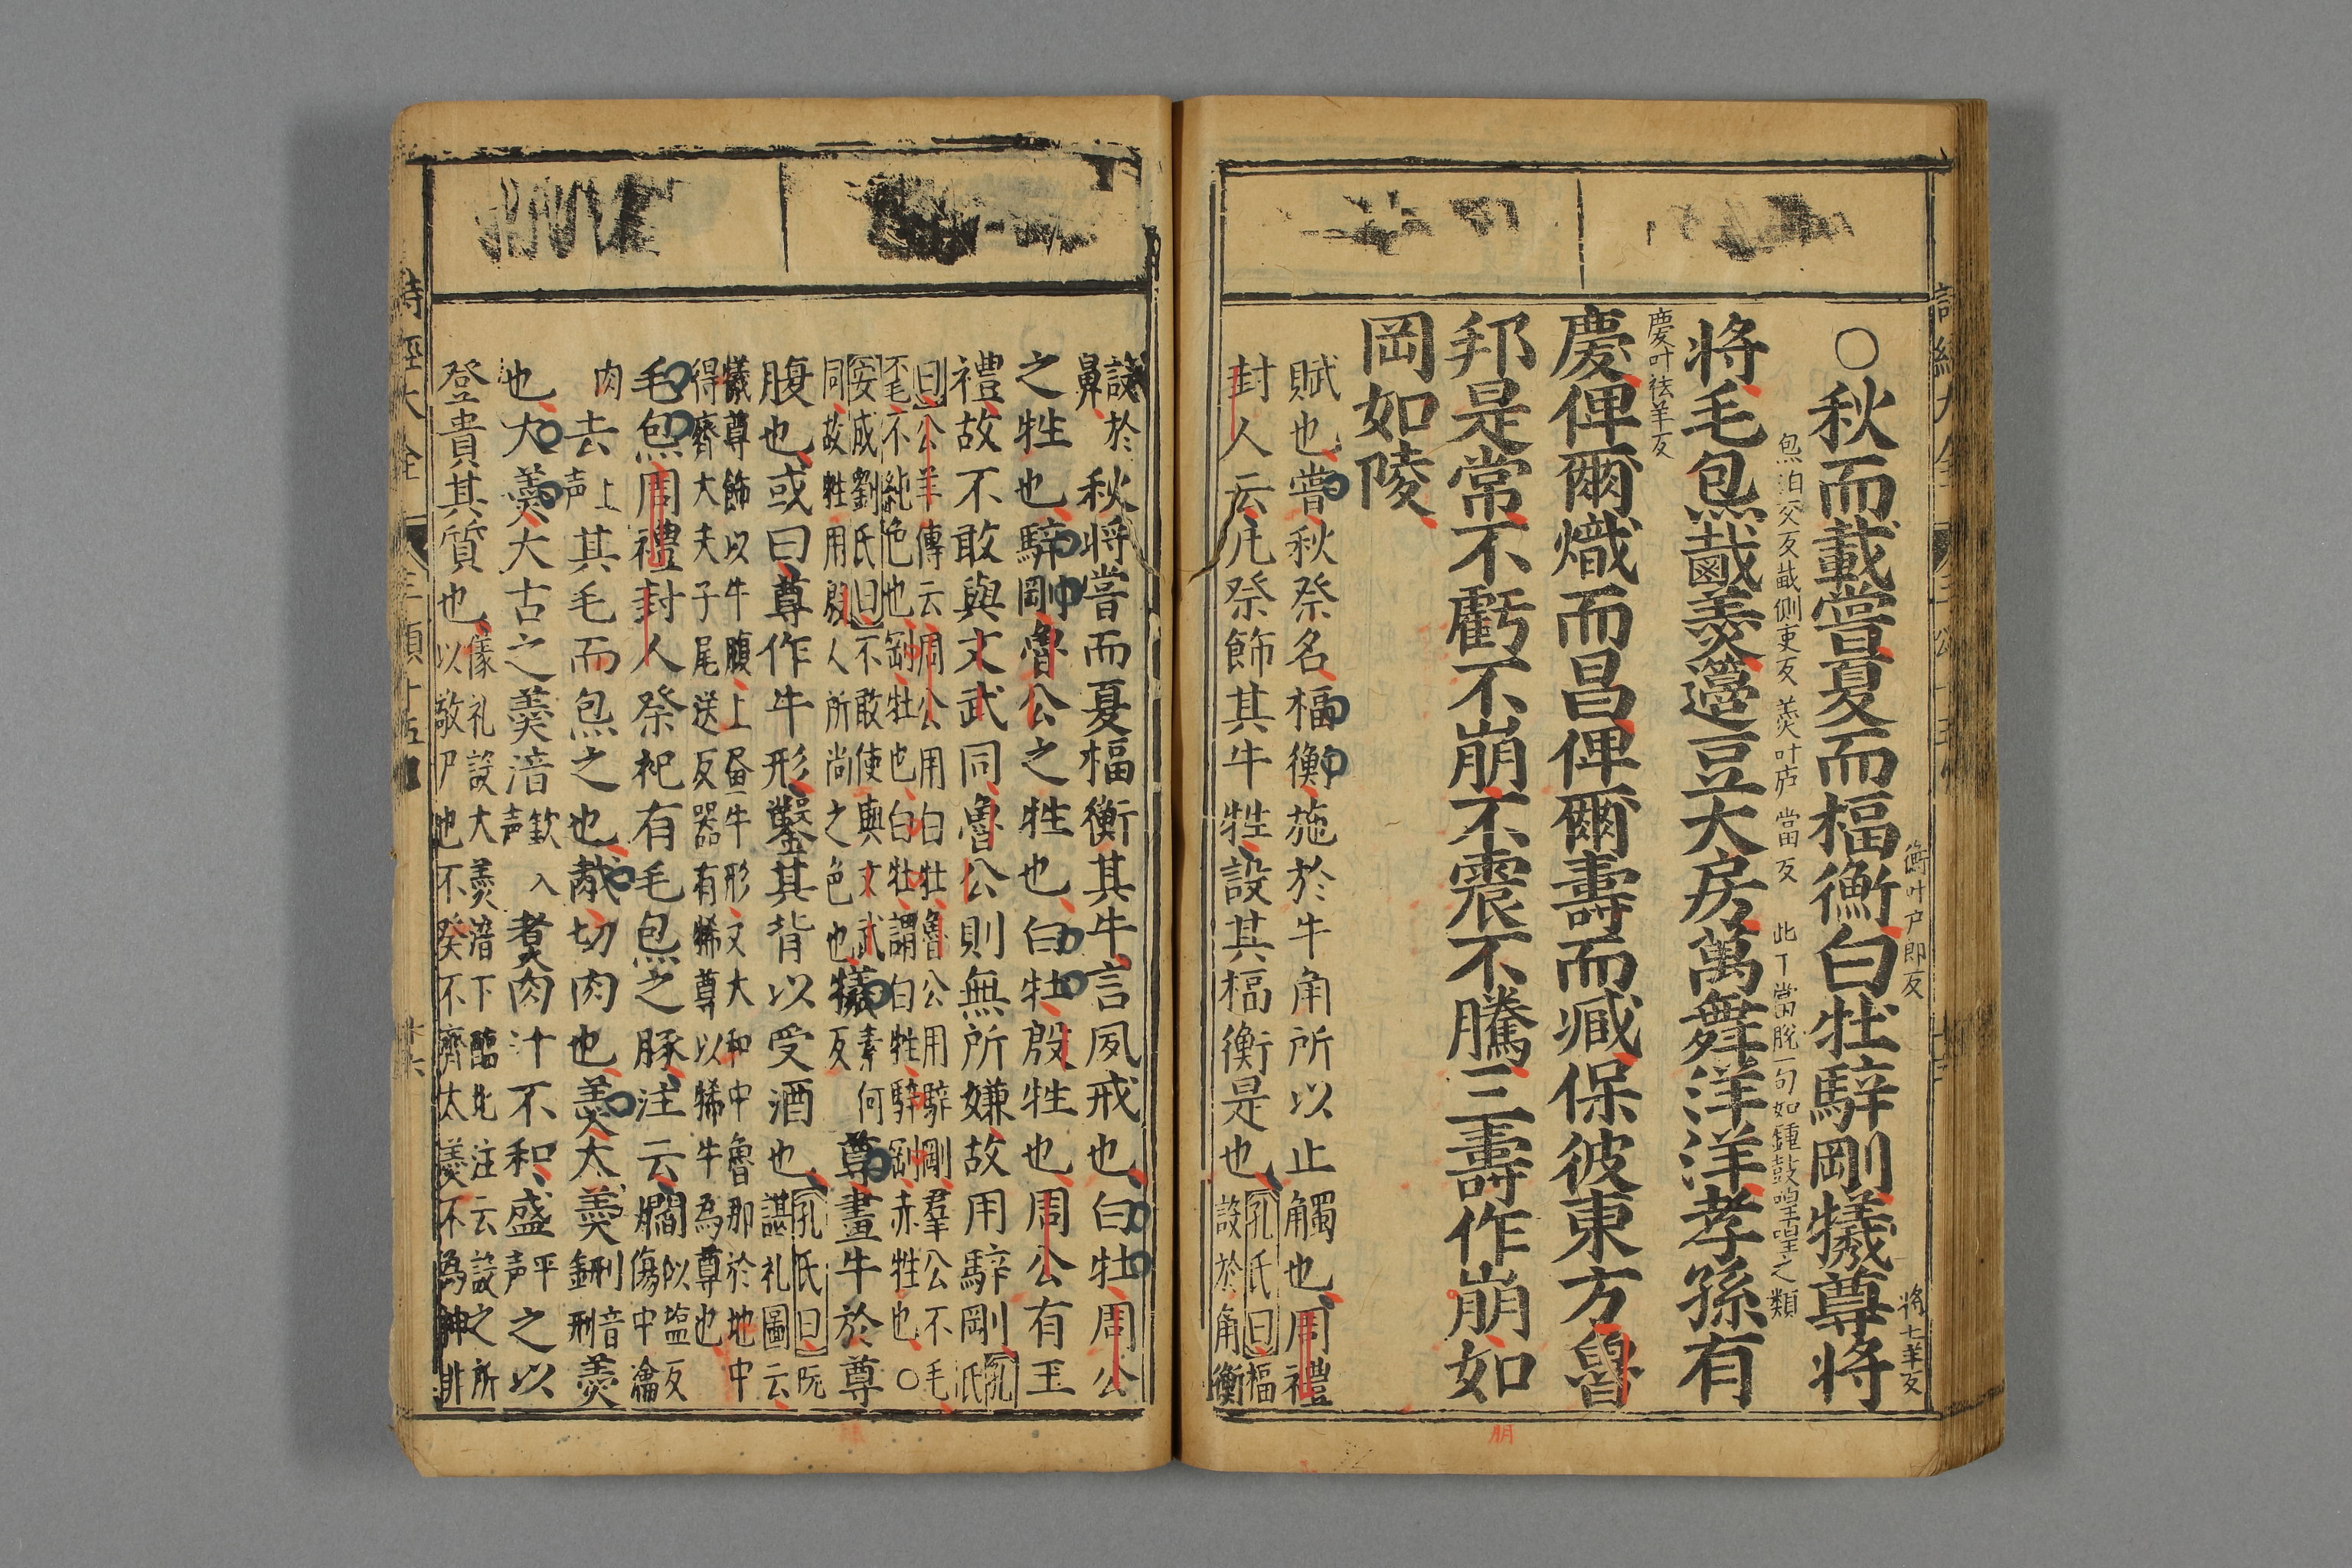 ○秋而載嘗夏而楅衡白牡騂剛犧尊將
衡叶户郎反
將七羊反
將毛炰胾羹籩豆大房萬舞洋洋孝孫有
炰泊交反胾側吏反
羹叶庐當反
此下當脫一句如鍾鼓喤喤之類
慶俾爾熾而昌俾爾壽而臧保彼東方魯
慶叶祛羊反
邦是常不虧不崩不震不騰三壽作崩如
朋
岡如陵
賦也嘗秋祭名楅衡施於牛角所以止觸也周禮
封人云凡祭飾其牛牲設其楅衡是也
孔氏曰楅
設於角衡
設於
鼻
秋將嘗而夏楅衡其牛言夙戒也白牡周公
之牲也騂剛魯公之牲也白牡殷牲也周公有王
禮故不敢與文武同魯公則無所嫌故用騂剛
孔氏
曰公羊傳云周公用白牡魯公用騂剛羣公不毛
不純色也剛牡也白牡謂白牲騂剛赤牲也○
安成劉氏曰不敢使與文武
同故牲用殷人所尚之色也
犧
素何
反
尊畫牛於尊
腹也或曰尊作牛形鑿其背以受酒也
孔氏曰阮
諶礼圖云
犧尊飾以牛腹上畫牛形文大和中魯郡於地中
得齊大夫子尾送反器有犧尊以犧牛為尊也
毛炰周禮封人祭祀有毛炰之豚注云爓
似盐反
傷中瀹
肉
去
上
声
其毛而炰之也胾切肉也羹大羹鉶
音
刑
羹
也大羹大古之羹湆
欽入
声
煮肉汁不和盛
平
声
之以
登貴其質也
儀礼設大羹湆下臨北注云設之所
以敬尸也不祭不齊太羹不為神非
詩經大全
十六